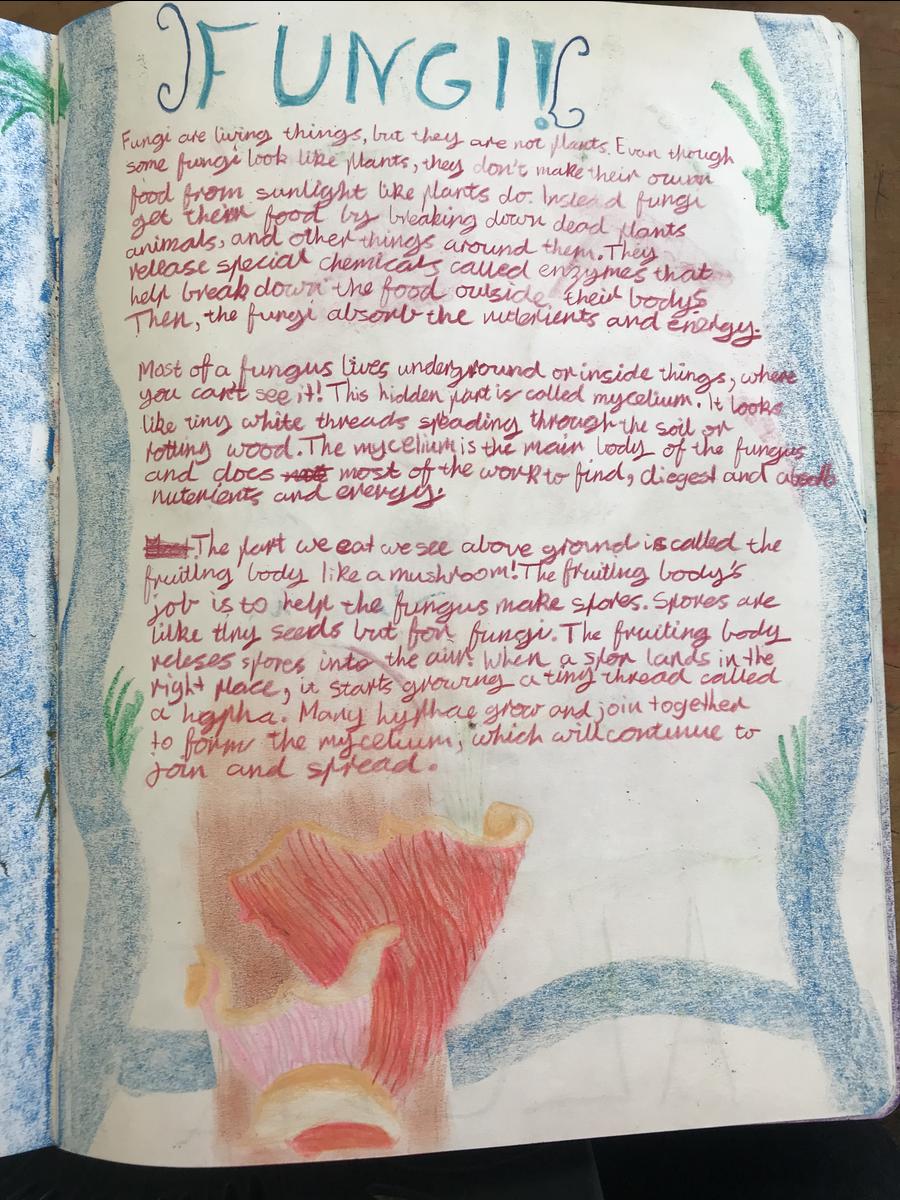 FUNGI!
Fungi are living things, but they are not plants. Evan though
some fungi look like plants, they don't make their ouwn
food from sunlight like plants do. Instead fungi
get them food by breaking down dead plants
animals, and other things around them. They
release special chemicals called enzymes that
help break down the food outside their bodys
Then, the fungi absorb the nuterients and energy.
Most of a fungus lives underground or inside things, where
you can't see it! This hidden part is called mycelium. It looks
like tiny white threads spreading through the soil or
rotting wood. The mycelium is the main body of the fungus
and does most of the work to find, diegest and absorb
nuterients and energy.
The part we eat we see above ground is called the
fruiting body like a mushroom! The fruiting body's
job is to help the fungus make spores. Spores are
lilke tiny seeds but for fungi. The fruiting body
releses spores into the air. When a spor lands in the
right place, it starts growing a tiny thread called
a hypha. Many hyphae grow and join together
to form the mycelium, which will continue to
join and spread.